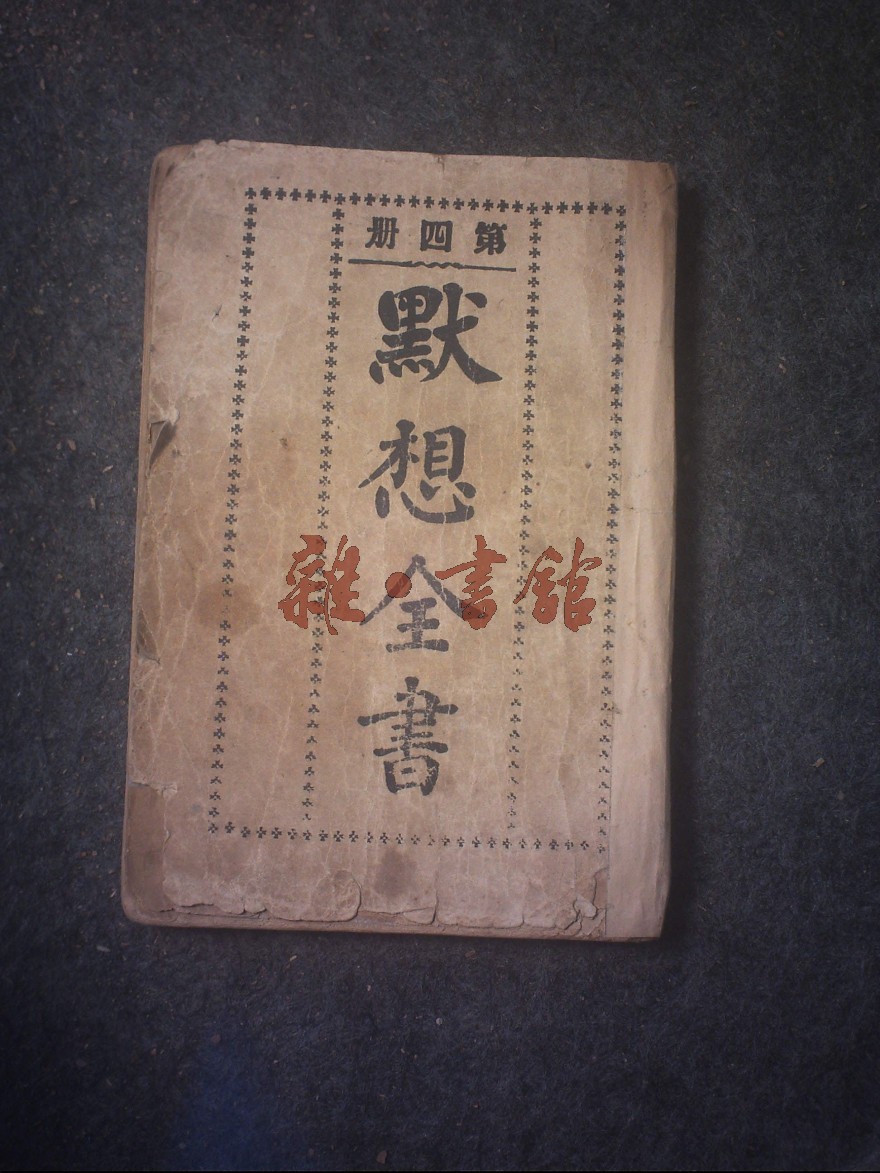 第四册
默想全書
雜·書館